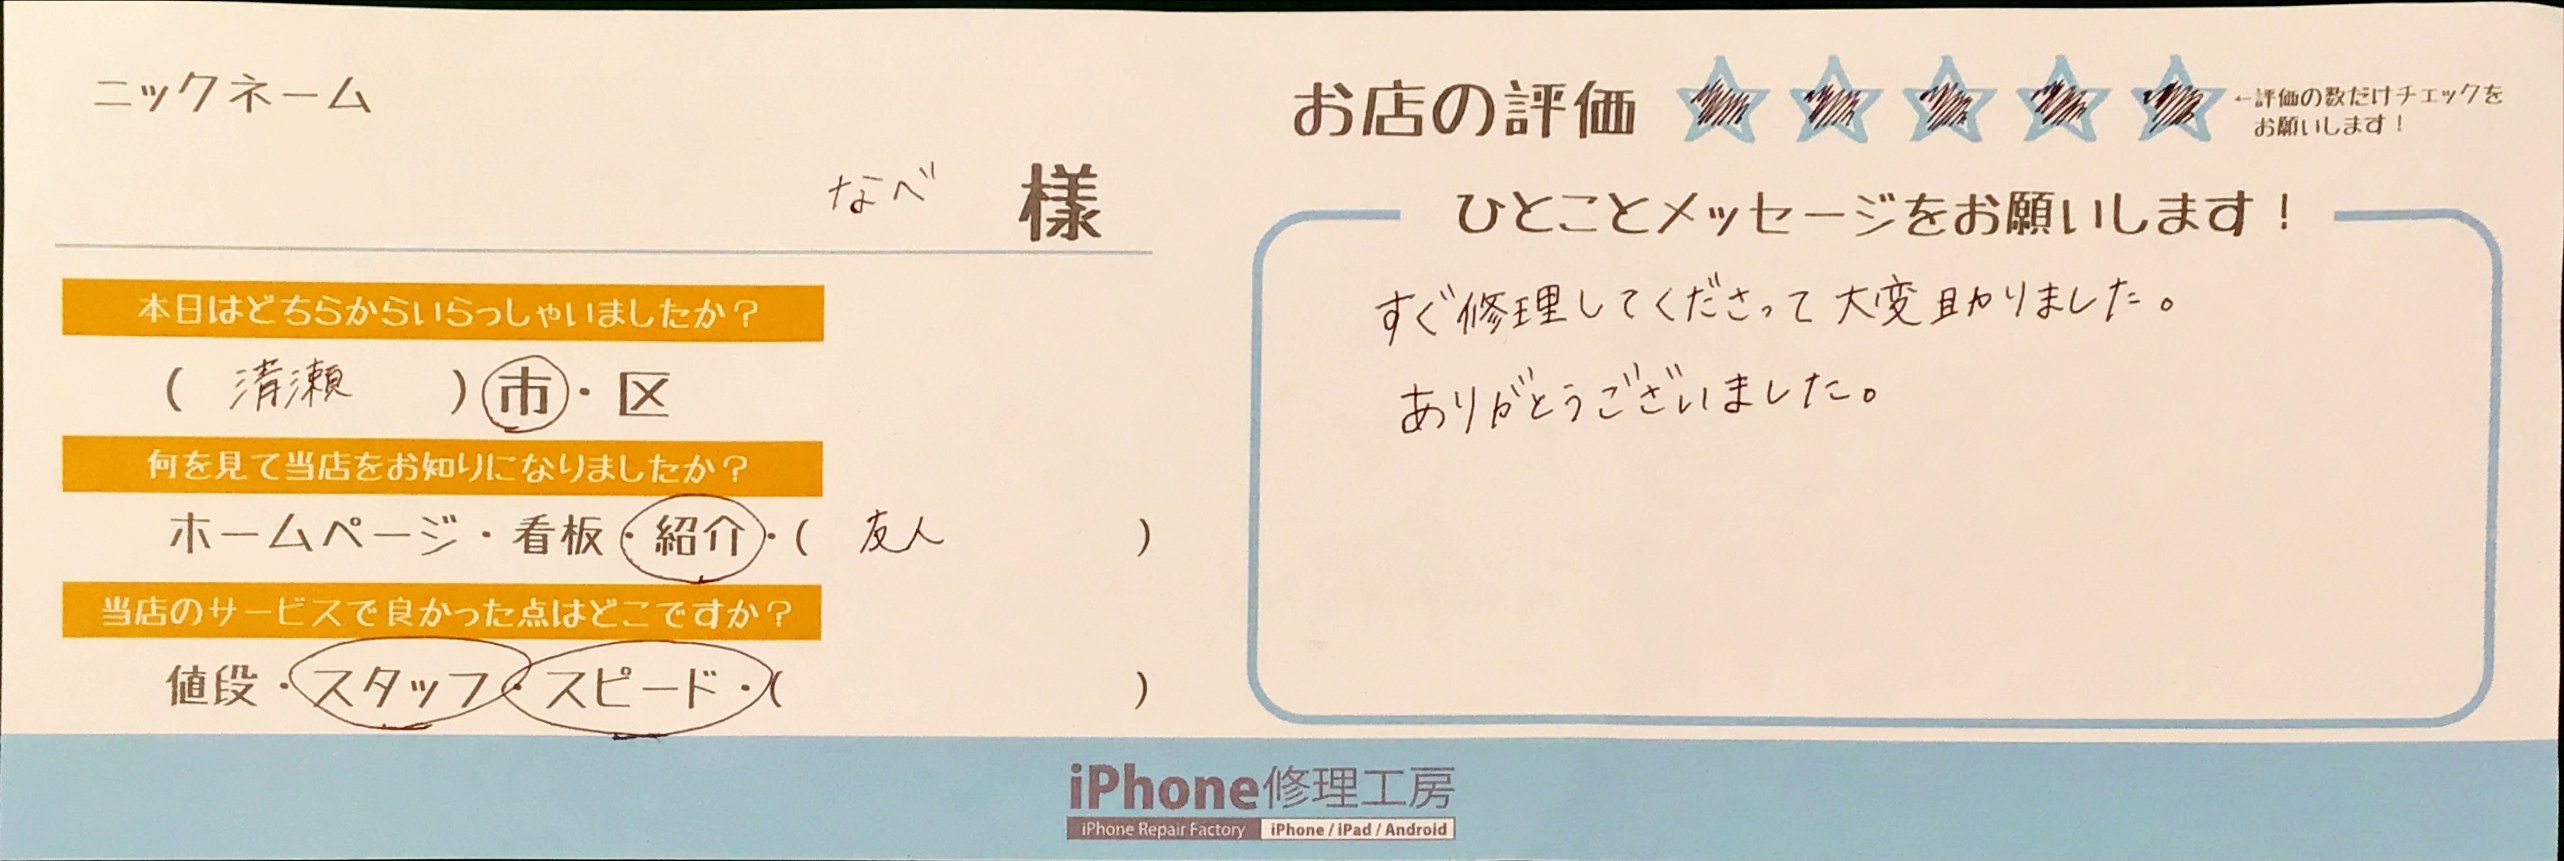 ニックネーム
なべ 様
本日はどちらからいらっしゃいましたか?
( 清瀬 ) 市・区
何を見て当店をお知りになりましたか?
ホームページ・看板・紹介・( 友人 )
当店のサービスで良かった点はどこですか?
値段・スタッフ・スピード・( )
お店の評価 ←評価の数だけチェックを
お願いします!
ひとことメッセージをお願いします!
すぐ修理してくださって大変助かりました。
ありがとうございました。
iPhone修理工房
iPhone Repair Factory iPhone / iPad / Android